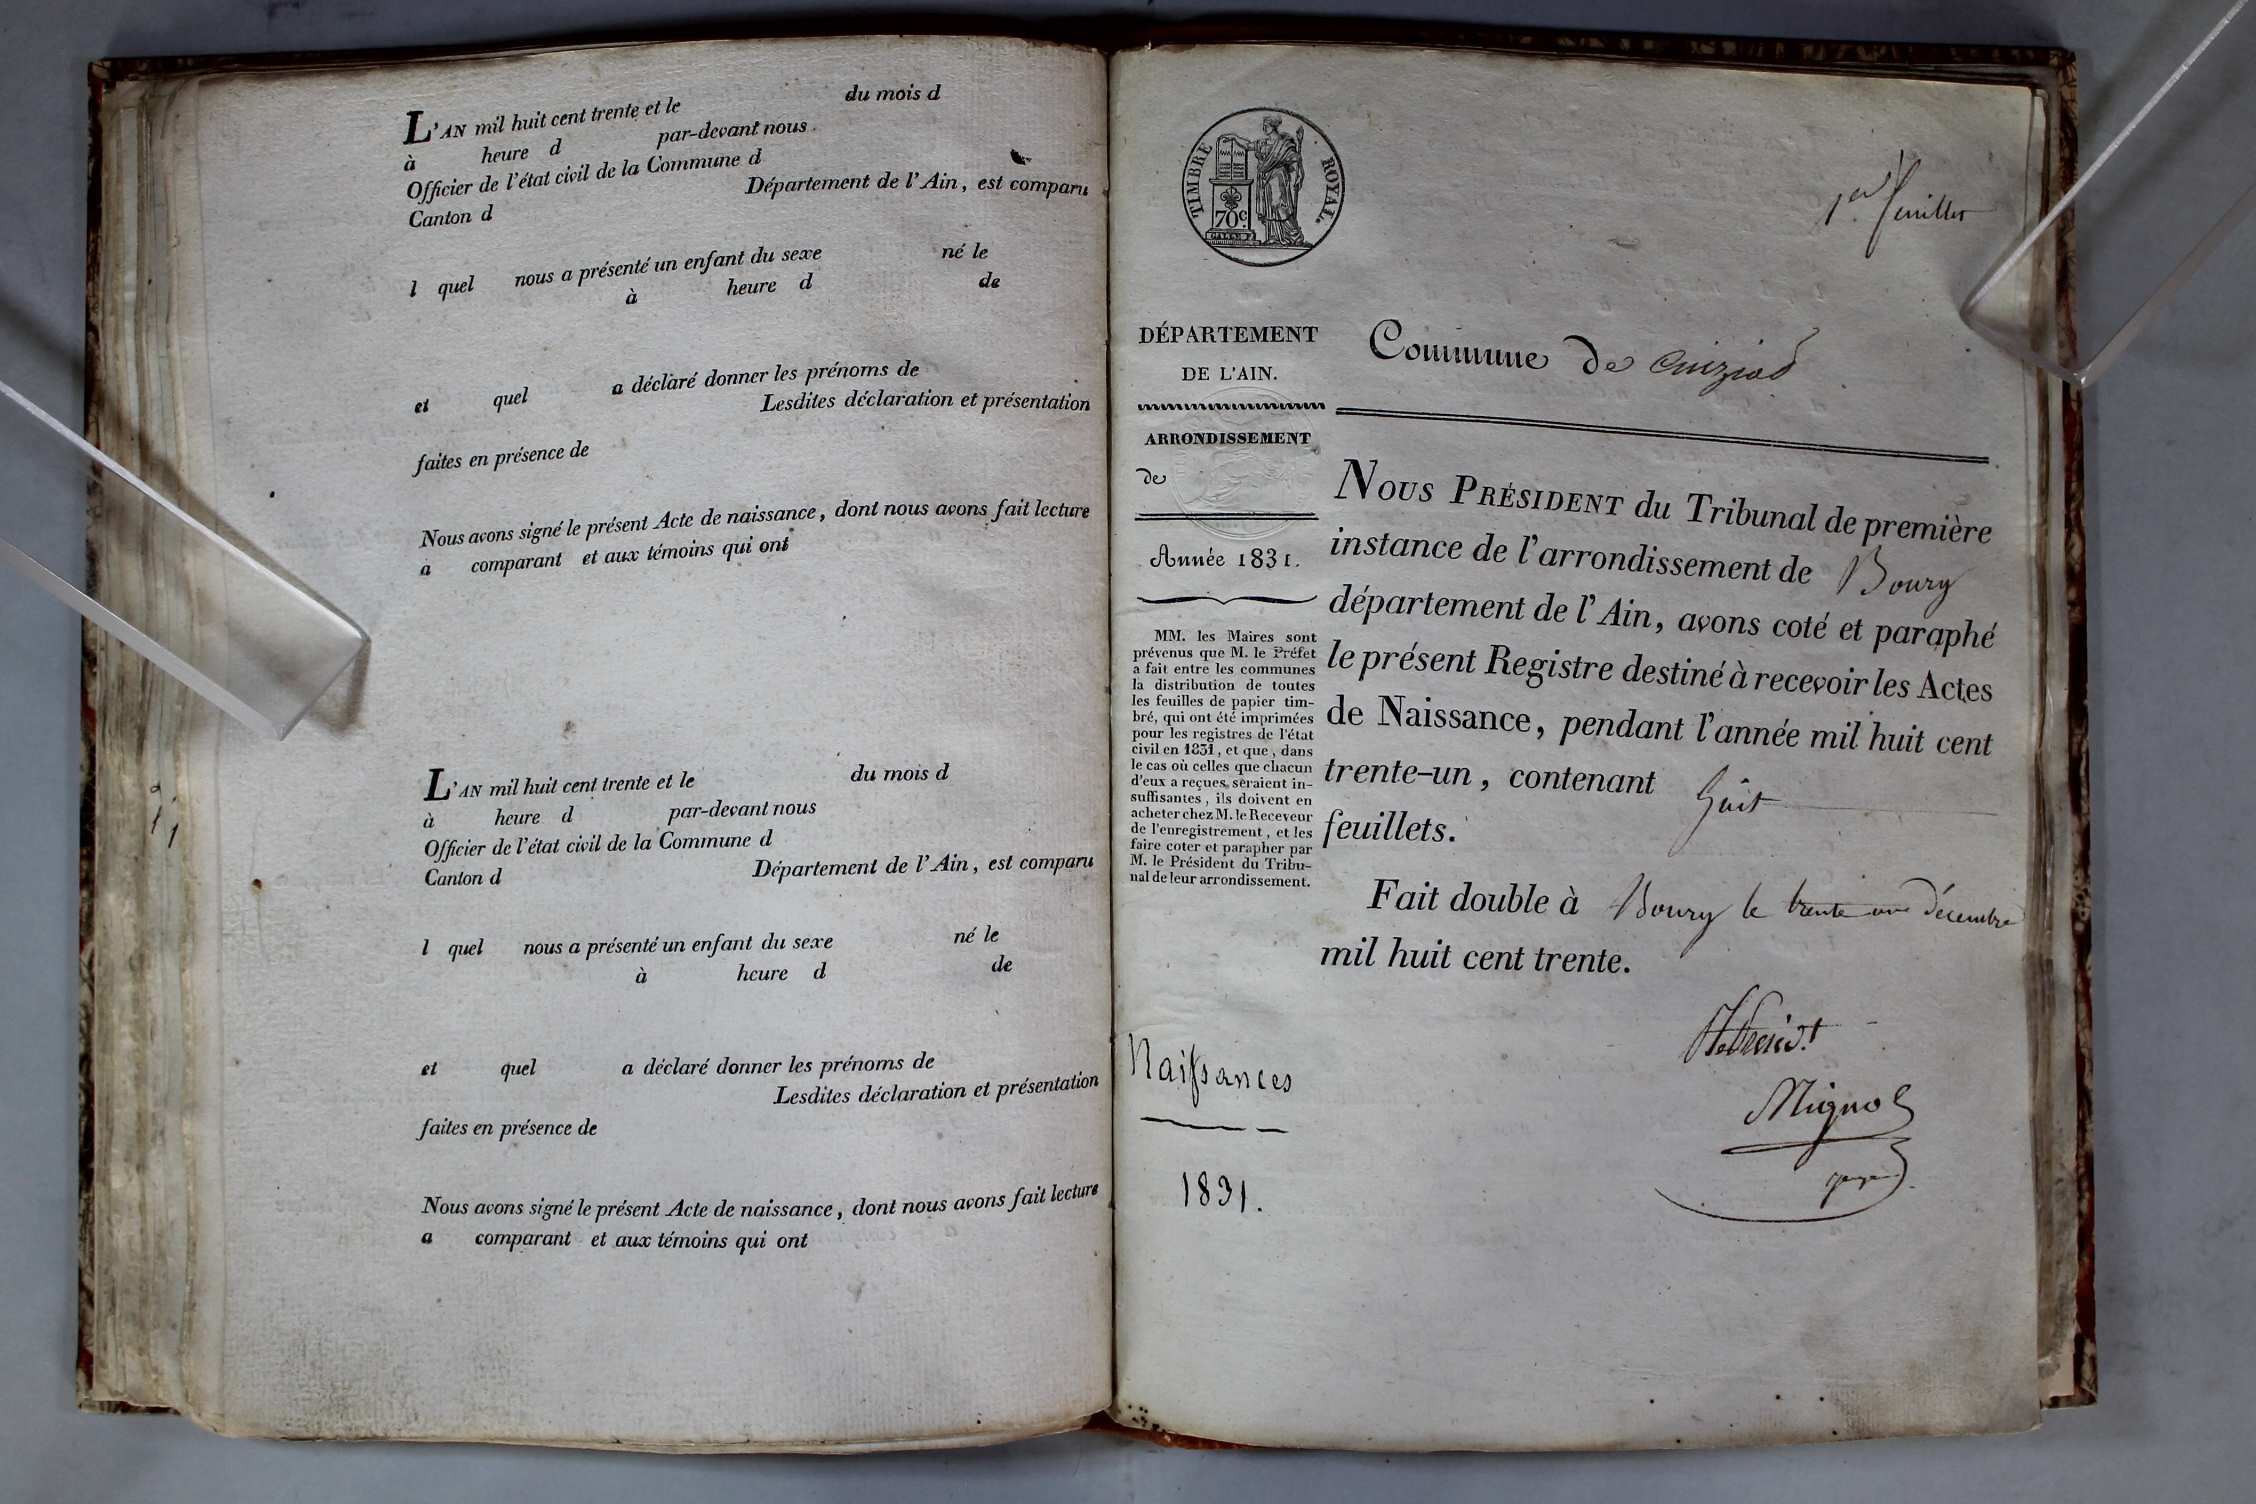 L'AN mil huit cent trente et le du mois d
à heure d par-devant nous
Officier de l'état civil de la Commune d
Canton d Département de l'Ain, est comparu
l quel nous a présenté un enfant du sexe né le
à heure d de
et quel a déclaré donner les prénoms de
Lesdites déclaration et présentation
faites en présence de
Nous avons signé le présent Acte de naissance, dont nous avons fait lecture
a comparant et aux témoins qui ont
L'AN mil huit cent trente et le du mois d
à heure d par-devant nous
Officier de l'état civil de la Commune d
Canton d Département de l'Ain, est comparu
l quel nous a présenté un enfant du sexe né le
à heure d de
et quel a déclaré donner les prénoms de
Lesdites déclaration et présentation
faites en présence de
Nous avons signé le présent Acte de naissance, dont nous avons fait lecture
a comparant et aux témoins qui ont
TIMBRE ROYAL.
70c.
1er feuillet
DÉPARTEMENT
DE L'AIN.
ARRONDISSEMENT
de
Année 1831.
MM. les Maires sont
prévenus que M. le Préfet
a fait entre les communes
la distribution de toutes
les feuilles de papier tim-
bré, qui ont été imprimées
pour les registres de l'état
civil en 1831, et que, dans
le cas où celles que chacun
d'eux a reçues, seraient in-
suffisantes, ils doivent en
acheter chez M. le Receveur
de l'enregistrement, et les
faire coter et parapher par
M. le Président du Tribu-
nal de leur arrondissement.
Naissances
1831.
Commune de Cuiziat
NOUS PRÉSIDENT du Tribunal de première
instance de l'arrondissement de Bourg
département de l'Ain, avons coté et paraphé
le présent Registre destiné à recevoir les Actes
de Naissance, pendant l'année mil huit cent
trente-un, contenant huit
feuillets.
Fait double à Bourg le trente un décembre
mil huit cent trente.